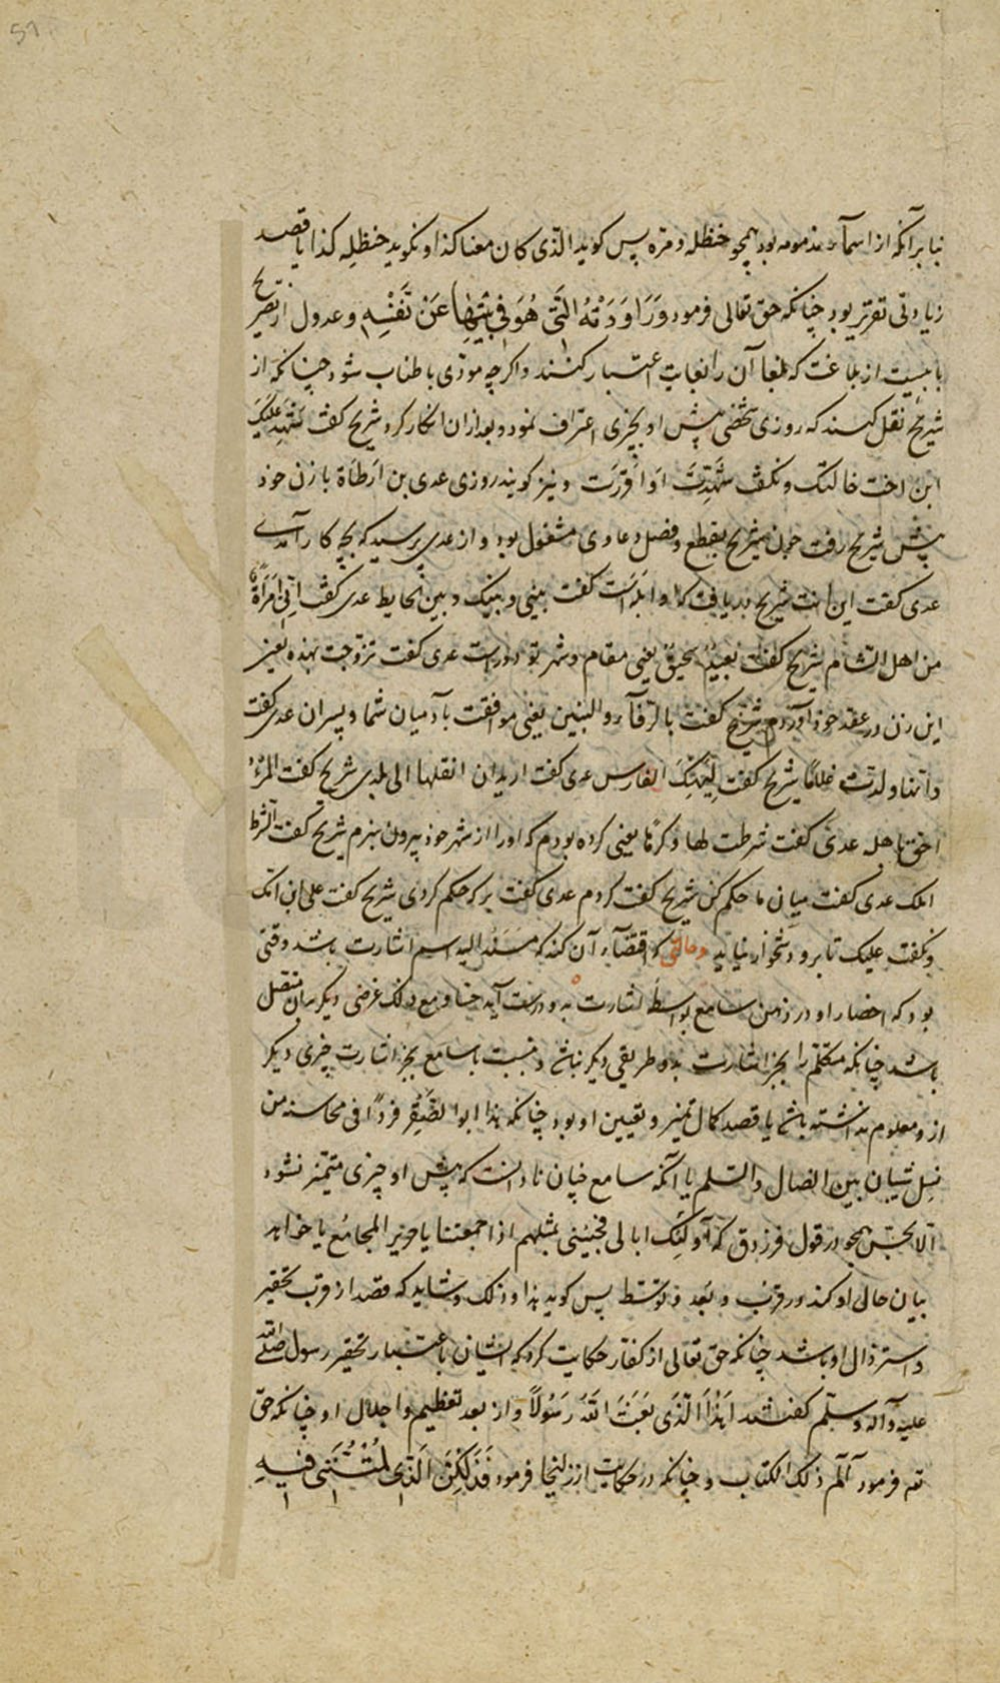 51
بنا برآنکه از اسمآء مذمومه بود همچو حنظله و مره پس کوید الّذی کان معنا کذا و نکوید حنظله کذا یا قصد
زیادتی تقریر بود چنانکه حق تعالی فرمود وَرَاوَدَتْهُ الَّتی هُوَ فی بَیْتِهَا عَنْ نَفْسِهِ و عدول از تصریح
بابیست از بلاغت که بلغا آن را بغایت اعتبار کنند و اکرچه مؤدی باطناب شود چنانکه از
شریح نقل کنند که روزی شخصی پیش او بچیزی اعتراف نمود و بعد ازان انکار کرد شریح کفت شَهِدَ عَلَیْکَ
ابن اخت خالتک و نکفت شَهِدْتَ اَوْ اَقْرَرْتَ و نیز کویند روزی عدی بن اَرطاة با زن خود
پیش شریح رفت چون شریح بقطع و فصل دعاوی مشغول بود و از عدی پرسید که بچه کار آمدی
عدی کفت این انت شریح دریافت که او ابله است کفت بینی و بینک و بین الحایط عدی کفت اِنّی امْرَأةٌ
من اهل الشام شریح کفت بعیدٌ سحیقٌ یعنی مقام و شهر تو دورست عدی کفت تزوجت بهذه یعنی
این زن در عقد خود آوردم شریح کفت بالرفآء و البنین یعنی موافقت باد میان شما و پسران عدی کفت
و انها ولدت غلامًا شریح کفت لِیَهْنِکَ الفارس عدی کفت ارید ان انقلها الی بلدی شریح کفت المَرْءُ
احق باهله عدی کفت شرطت لها وکرهًا یعنی کرده بودم که او را از شهر خود بیرون نبرم شریح کفت الشرط
املک عدی کفت میان ما حکم کن شریح کفت کردم عدی کفت بر که حکم کردی شریح کفت علی ابن امّک
و نکفت علیک تا برو دشخوار نیاید و حالتی که اقتضآء آن کند که مسند الیه اسم اشارت باشد وقتی
بود که احضار او در ذهن سامع بواسطهٔ اشارت بدو درست آید حسًا و مع ذلک غرضی دیکر بدان متصل
باشد چنانکه متکلم را بجز اشارت بدو طریقی دیکر نباشد و نسبت با سامع بجز اشارت چیزی دیکر
ازو معلوم نداشته باشد یا قصد کمال تمیز و تعیین او بود چنانکه هذا ابو الصَّقْر فردًا فی محاسنه من
نسل شیبان بین الضال و السلم یا آنکه سامع چنان نادانست که پیش او چیزی متمیّز نشود
الا بحسّ همچو در قول فرزدق که اُولئِک ابائی فجِئنی بمثلهم اذا جمعتنا یا جریر المجامُع یا خواهد
بیان حال او کند در قرب و بعد و توسّط پس کوید هذا و ذلک و شاید که قصد از قرب تحقیر
و استرذال او باشد چنانکه حق تعالی از کفار حکایت کرد که ایشان باعتبار تحقیر رسول صلی الله
علیه و آله و سلّم کفتند اَهذَا الَّذی بَعَثَ اللهُ رَسُولًا و از بعد تعظیم و اجلال او چنانکه حق
تع فرمود الم ذلک الکتاب و چنانکه در حکایت از زلیخا فرمود فَذلِکُنَّ الَّذی لُمْتُنَّنی فیهِ